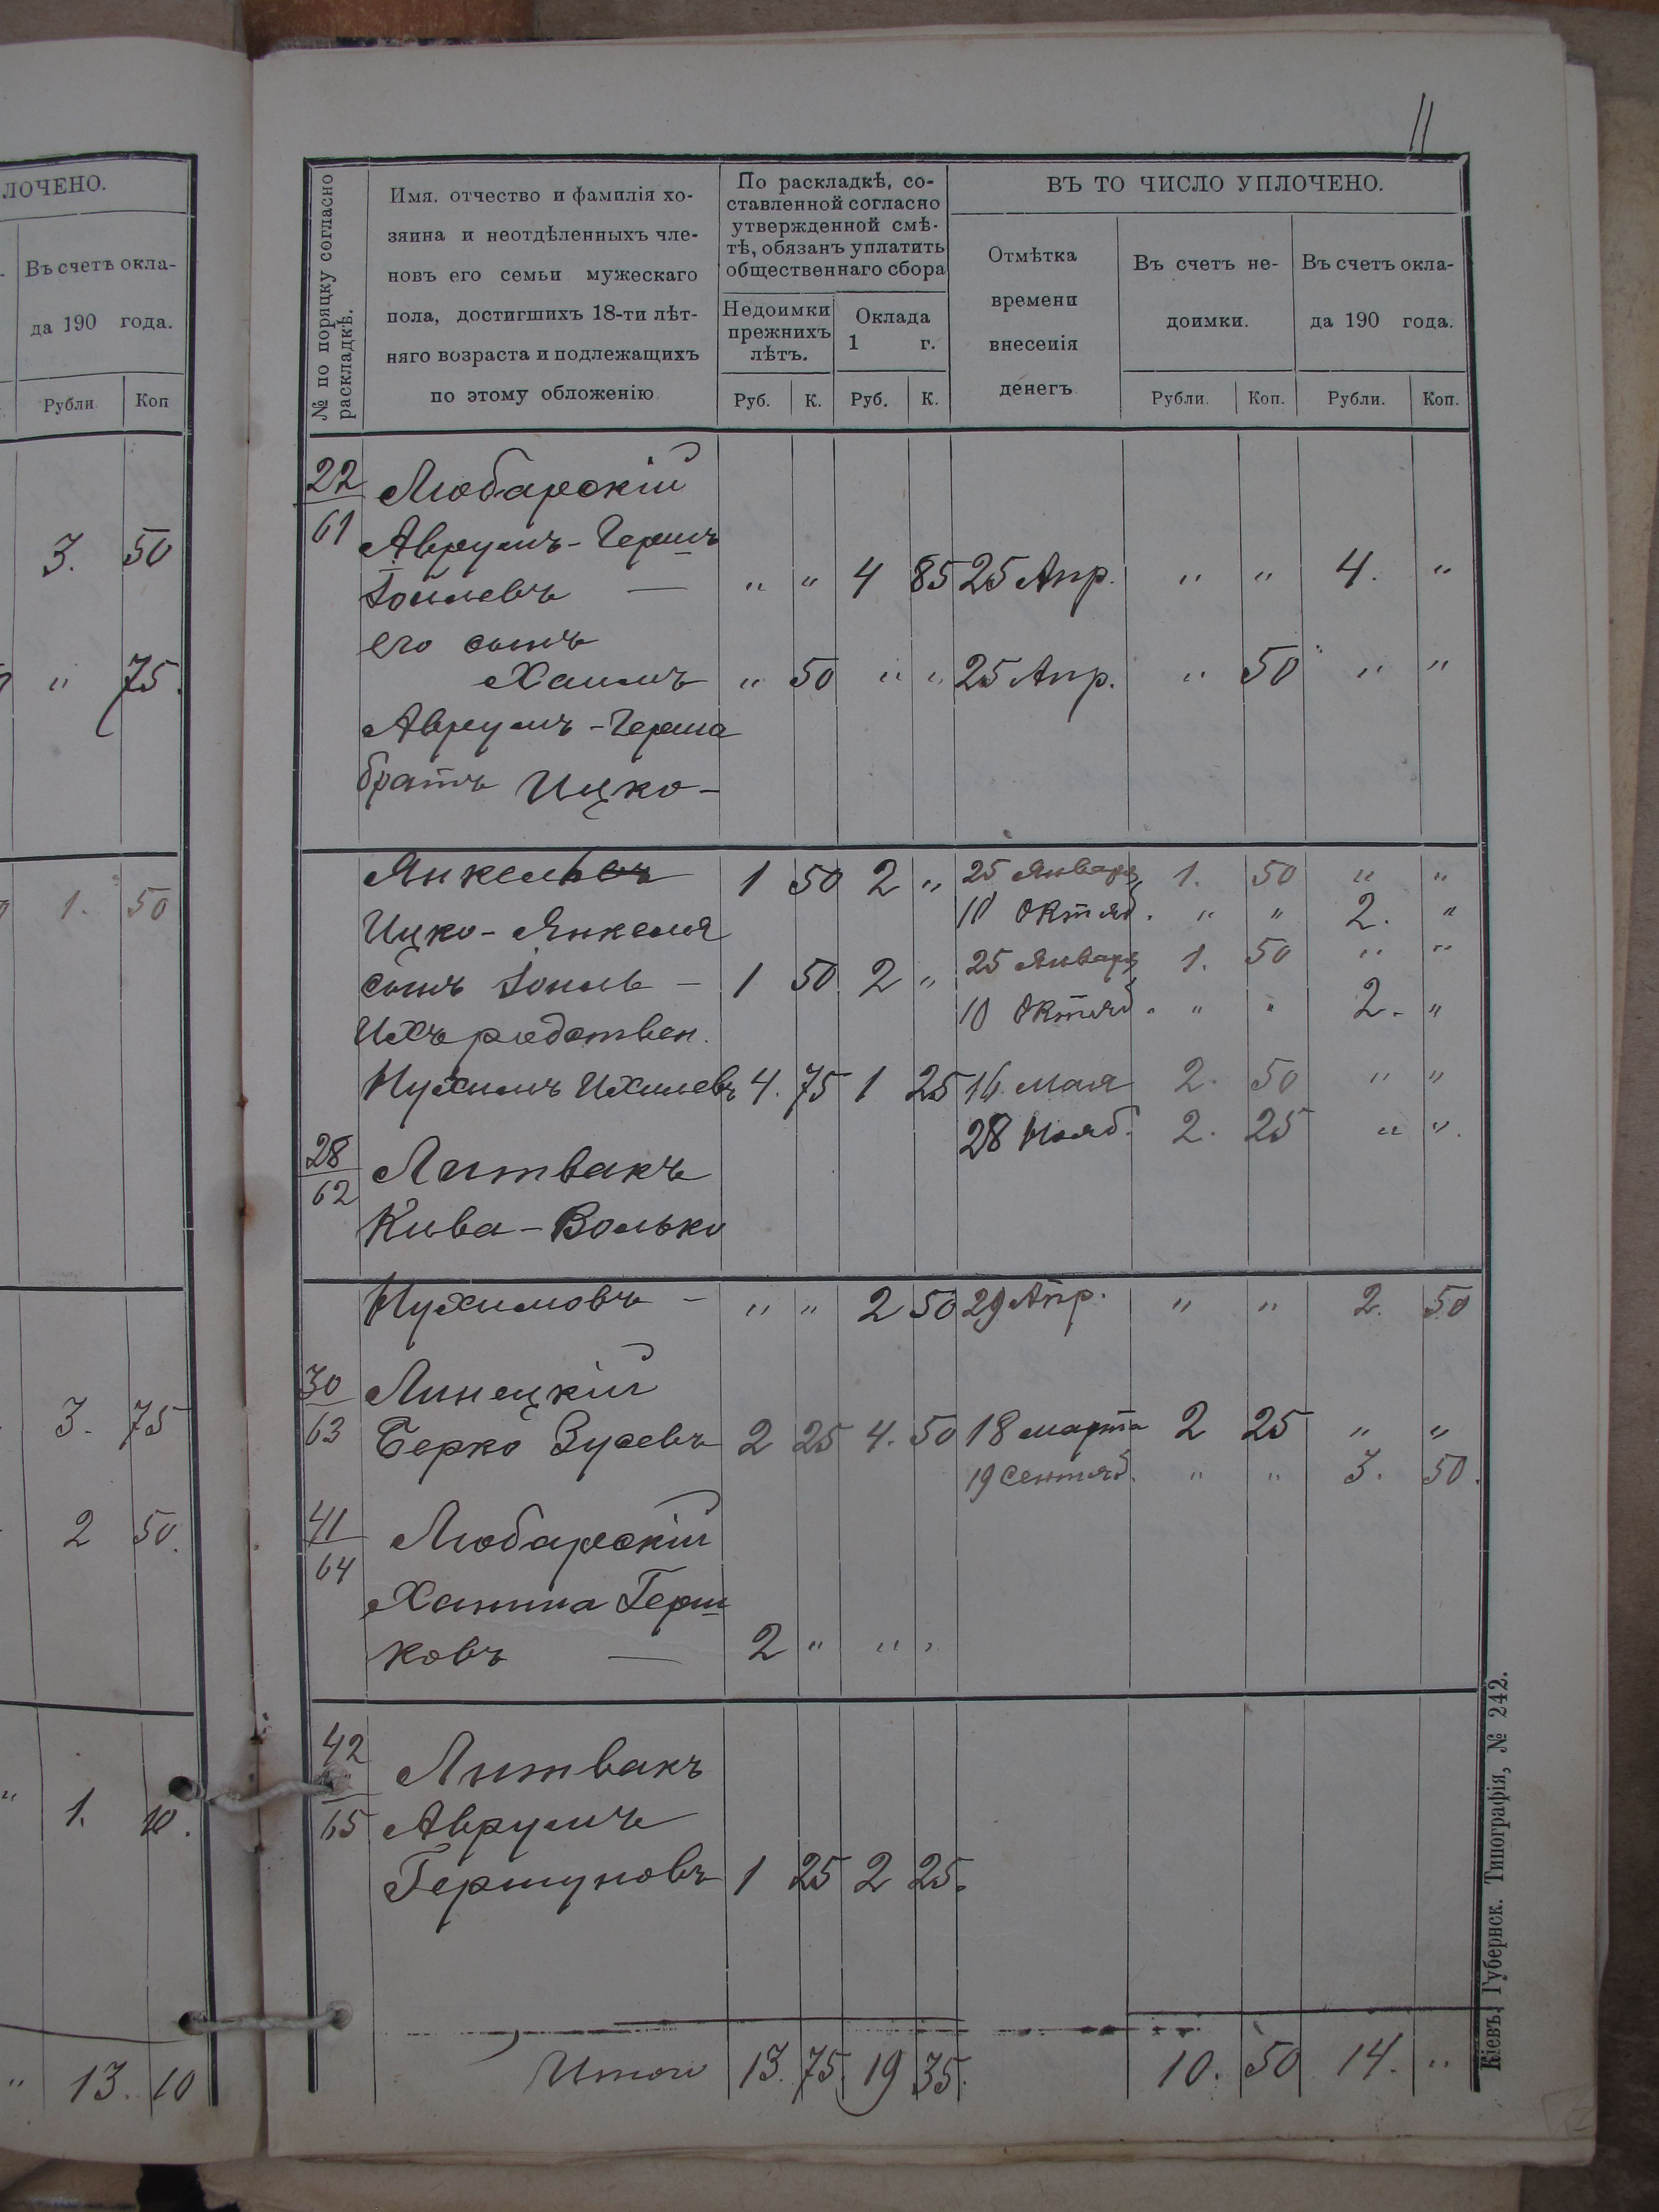 ЛОЧЕНО.
Въ счетъ окла-
да 190 года.
Рубли Коп
3. 50
" 75.
1. 50
3. 75
2 50.
" 1. 10.
" 13. 10
11
№ по порядку согласно
раскладкѣ.
Имя. отчество и фамилія хо-
зяина и неотдѣленныхъ чле-
новъ его семьи мужескаго
пола, достигшихъ 18-ти лѣт-
няго возраста и подлежащихъ
по этому обложенію
По раскладкѣ, со-
ставленной согласно
утвержденной смѣ-
тѣ, обязанъ уплатить
общественнаго сбора
Недоимки
прежнихъ
лѣтъ.
Оклада
1 г.
Руб. К. Руб. К.
ВЪ ТО ЧИСЛО УПЛОЧЕНО.
Отмѣтка
времени
внесенія
денегъ
Въ счетъ не-
доимки.
Въ счетъ окла-
да 190 года.
Рубли. Коп. Рубли. Коп.
22 Любарскій
61 Аврумъ-Гершъ
Іойлевъ — " " 4 85 25 Апр. " " 4. "
его сынъ
Хаимъ " 50 " " 25 Апр. " 50 " "
Аврумъ-Герша
братъ Ицко-
Янкельвъ 1 50 2 " 25 Января 1. 50 " "
10 Октяб. " " 2. "
Ицко-Янкеля
сынъ Іоиль - 1 50 2 " 25 Января 1. 50 " "
10 Октяб. " " 2. "
Ихъ родствен.
Нухимъ Ихилевъ 4. 75 1 25 16 Мая 2. 50 " "
28 Нояб. 2. 25 " ".
28 Литвакъ
62
Кива-Волько
Нухимовъ - " " 2 50 29 Апр. " " 2. 50
30 Линецкій
63 Берко Зусевъ 2 25 4. 50 18 марта 2 25 " "
19 Сентяб. " " 3. 50.
41 Любарскій
64
Ханина Герш
ковъ — 2 " " "
42 Литвакъ
65 Аврумъ
Гершуновъ 1 25 2 25.
Итого 13. 75. 19 35. 10. 50 14. "
Кіевъ, Губернск. Типографія, № 242.